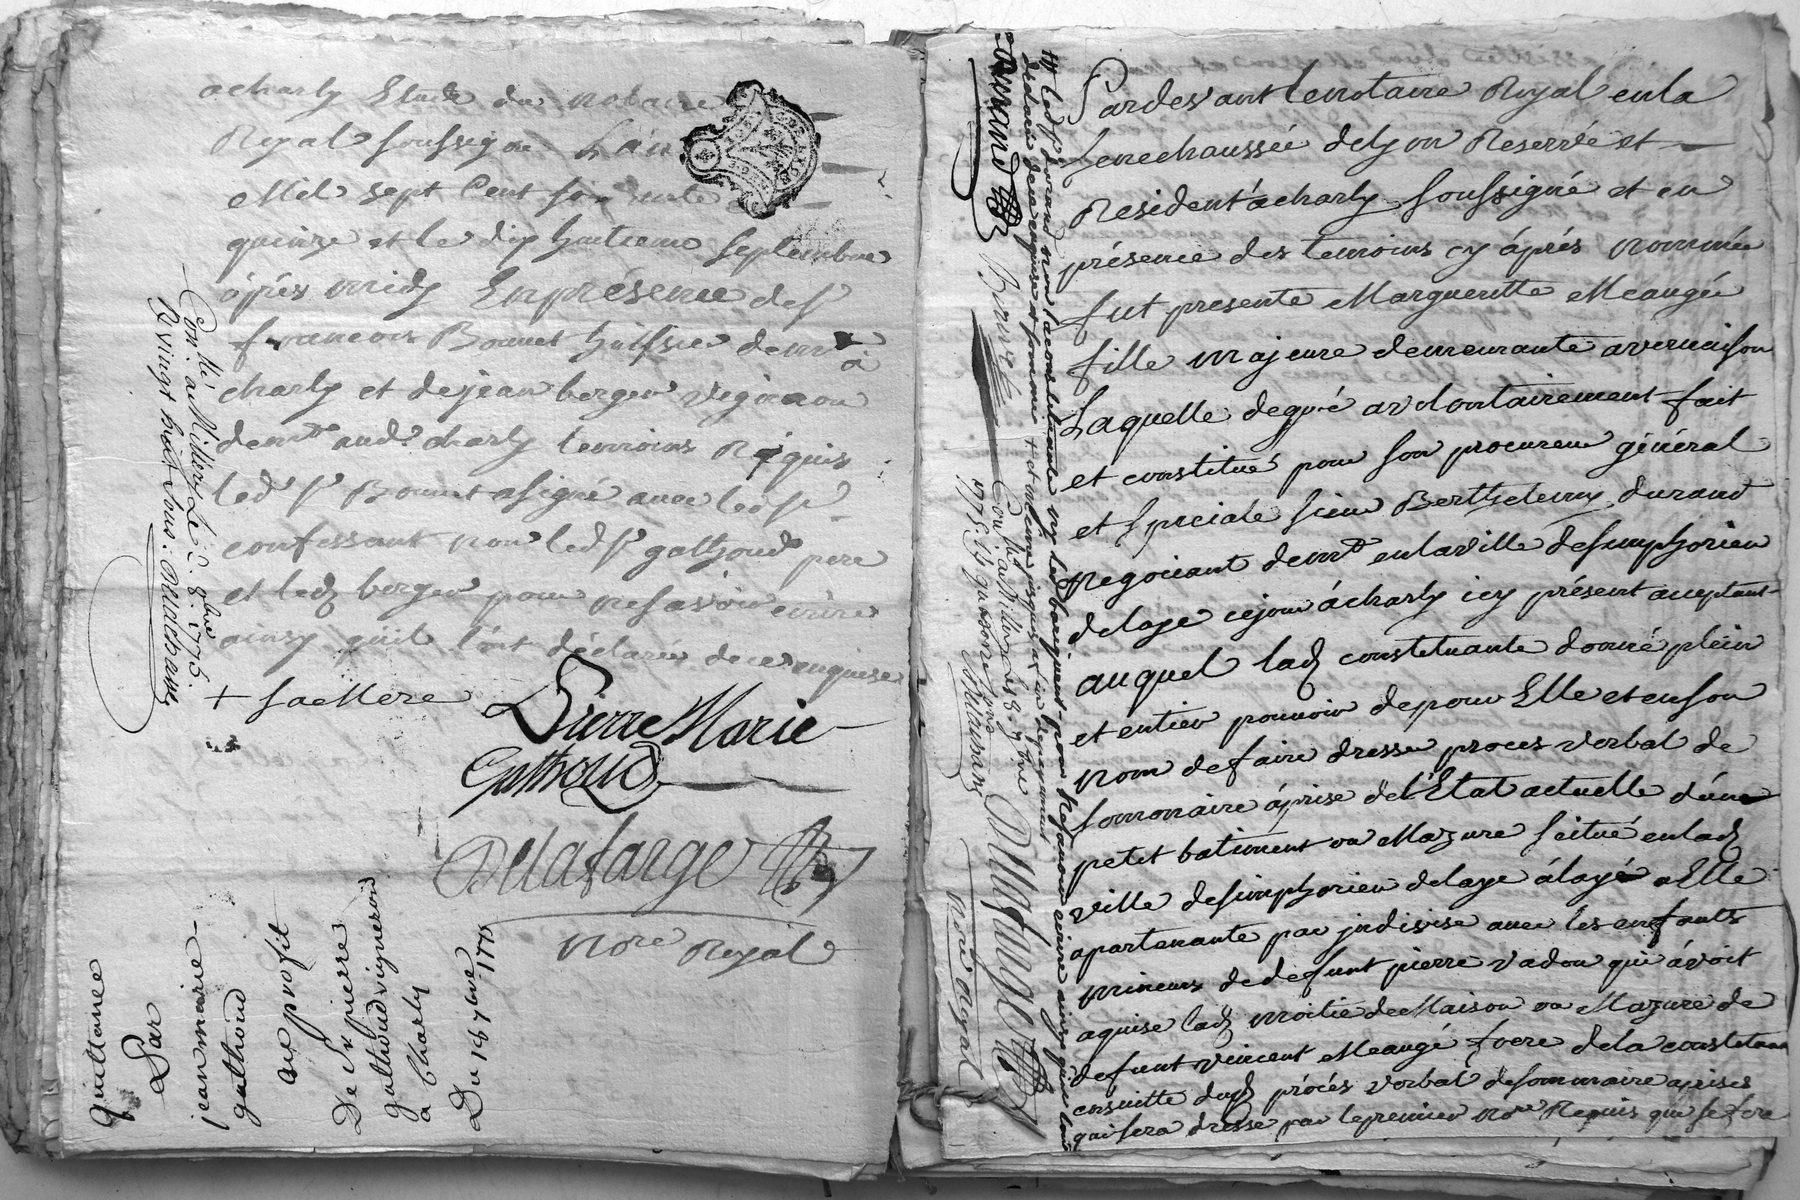 acharly Etude du notaire
Royal soussigné L'an
Mil sept Cent soixante
quinze et le dix huitieme septembre
après midy En présence de sr
francois Bonnet huissier demt à
charly et de jean berger vigneron
demt aud. charly temoins Requis
led sr Bonnet a signé avec led sr
confessant non led sr gathoud pere
et led berger pour ne savoir écrire
ainsy quil l'ont déclaré de ce enquis
+ sa Mere
Pierre Marie
Gathoud
Delafarge
nore Royal
Con.lle à Millery Le 2. 8bre 1775.
R vingt huit sous.
quittance
Par
jean marie
gathoud
au profit
De Sr pierre
gathoud vigneron
a Charly
Du 18 7bre 1775
durand
Bonnet
Con.lle a Millery 28. 7bre
1775. R quatorze sous
Delafarge
nore Royal
Pardevant le notaire Royal en la
senechaussée de lyon Reservé et
Resident à charly soussigné et en
présence des temoins cy après nommée
fut presente Margueritte Meaugée
fille majeure demeurante a vernaison
Laquelle de gré a volontairement fait
et constitué pour son procureur général
et spéciale sieur Berthelemy durand
negociant demt en la ville de simphorien
delaye ce jour à charly icy présent acceptant
auquel lad constituante donné plein
et entier pouvoir de pour Elle et en son
nom de faire dresser proces verbal de
sommaire àprise de l'Etat actuelle d'un
petit batiment ou Mazure scitué en lad
ville de simphorien delaye à Elle
apartenante par indivise avec les enfants
mineurs de defunt pierre vadon qui avoit
aquise lad moitié de Maison ou Mazure de
defunt vincent Meaugé frere de la constituante
ensuitte dud procés verbal de sommaire aprises
qui sera dressé par le premier nore Requis qui se fere